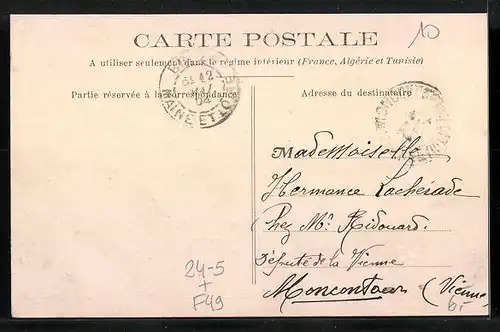 10
CARTE POSTALE
A utiliser seulement dans le régime intérieur (France, Algérie et Tunisie)
Partie réservée à la correspondance
Adresse du destinataire
MAINE ET LOIRE
Mademoiselle
Hermance Lacheiade
Chez Mr. Ridouard
Député de la Vienne
Moncontour (Vienne
24-5
+
F49
6.-